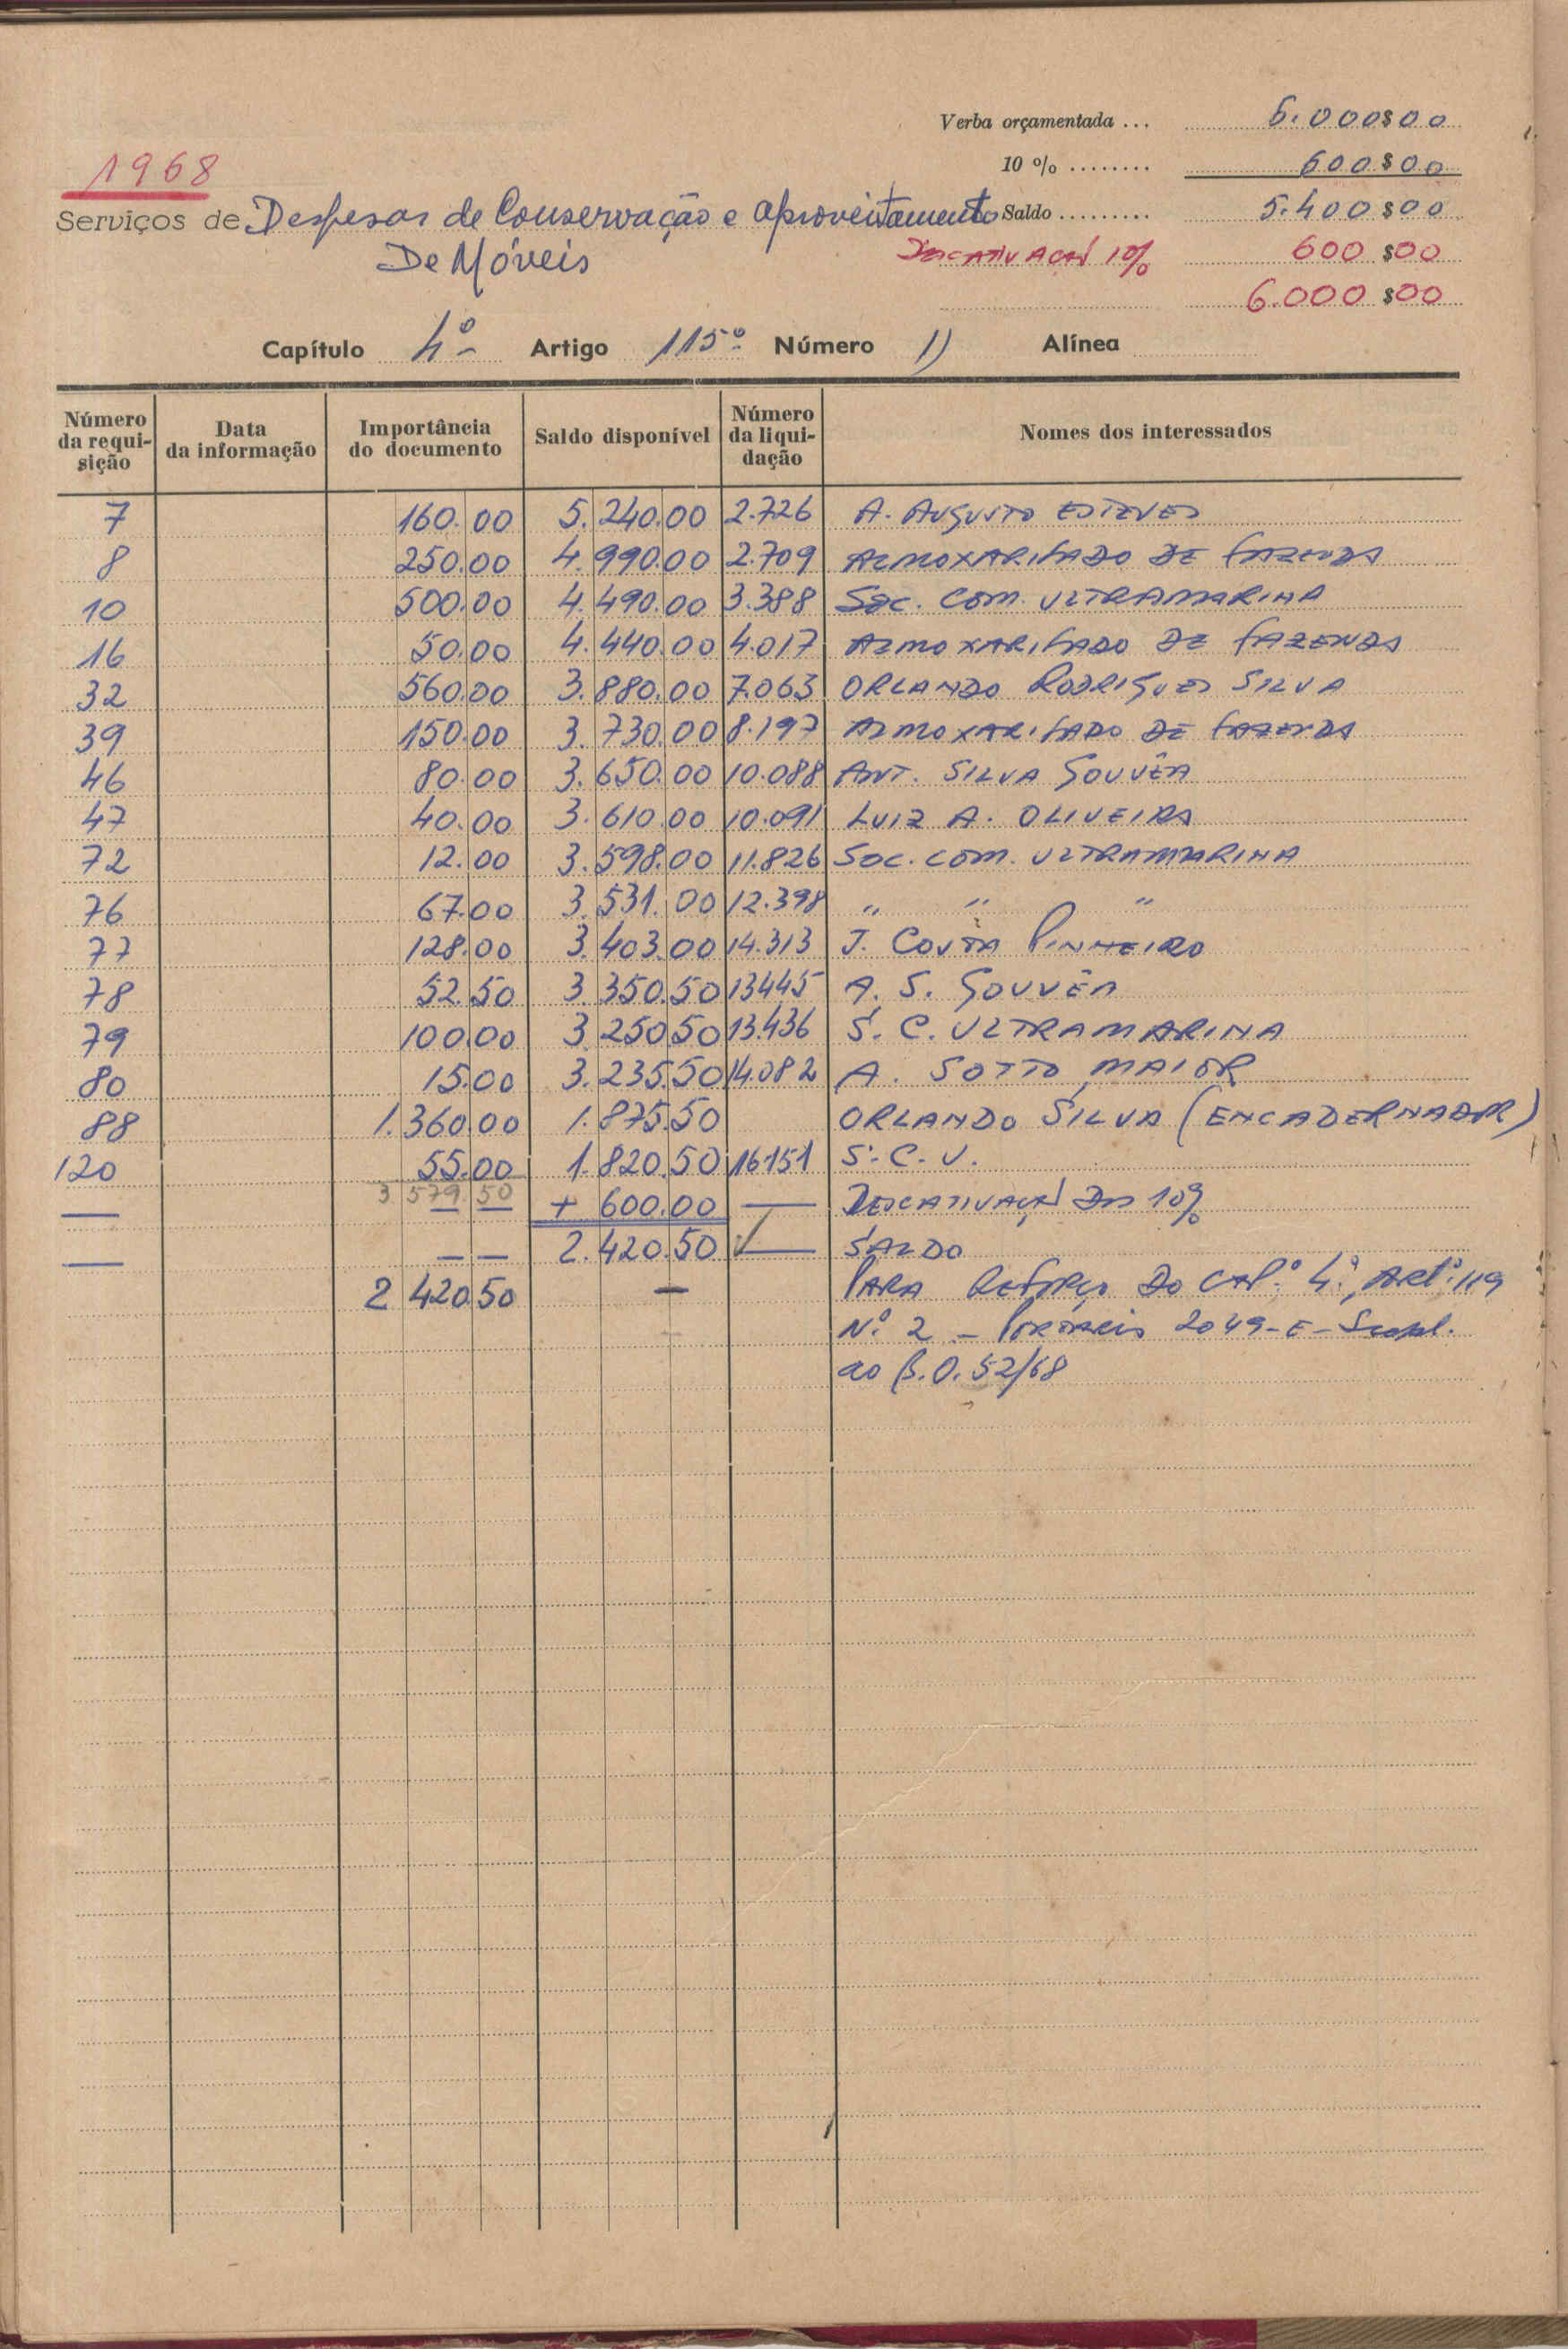 Verba orçamentada ... 6.000$00
1968
10 % ........ 600$00
Serviços de Despesas de Conservação e aproveitamento Saldo ......... 5.400$00
De Móveis
Descativação 10% 600$00
6.000$00
Capítulo 4º Artigo 115º Número 1) Alínea
Número da requi-sição Data da informação Importância do documento Saldo disponível Número da liqui-dação Nomes dos interessados
7 160.00 5.240.00 2.726 A. AUGUSTO ESTEVES
8 250.00 4.990.00 2.709 ALMOXARIFADO DE FAZENDA
10 500.00 4.490.00 3.388 SOC. COM. ULTRAMARINA
16 50.00 4.440.00 4.017 ALMOXARIFADO DE FAZENDA
32 560.00 3.880.00 7.063 ORLANDO RODRIGUES SILVA
39 150.00 3.730.00 8.197 ALMOXARIFADO DE FAZENDA
46 80.00 3.650.00 10.088 ANT. SILVA GOUVÊA
47 40.00 3.610.00 10.091 LUIZ A. OLIVEIRA
72 12.00 3.598.00 11.826 SOC. COM. ULTRAMARINA
76 67.00 3.531.00 12.398 " " "
77 128.00 3.403.00 14.313 J. COSTA PINHEIRO
78 52.50 3.350.50 13445 A. S. GOUVÊA
79 100.00 3.250.50 13.436 S. C. ULTRAMARINA
80 15.00 3.235.50 14.082 A. SOTTO MAIOR
88 1.360.00 1.875.50 ORLANDO SILVA (ENCADERNADOR)
120 55.00 1.820.50 16151 S. C. U.
3 579.50
— — — + 600.00 — DESCATIVAÇÃO DOS 10%
— — — 2.420.50 — SALDO
2 420.50 — PARA REFORÇO DO CAP.º 4.º, ART.º 119
N.º 2 - 2049-E- Supl.
ao B.O. 52/68